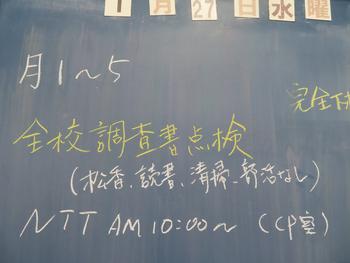 1月27日水曜
月1～5
完全下
全校調査書点検
(松香、読書、清掃、部活なし)
NTT AM10:00～ (CP室)